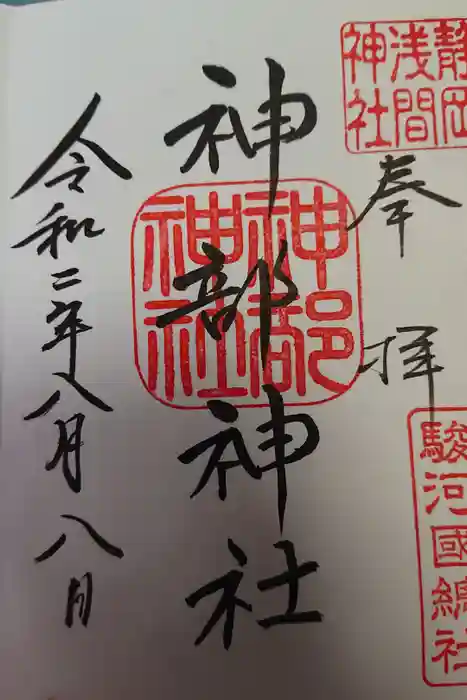 靜岡
浅間
神社
奉拝
駿河國總社
神部神社
神部
神社
令和二年八月八日